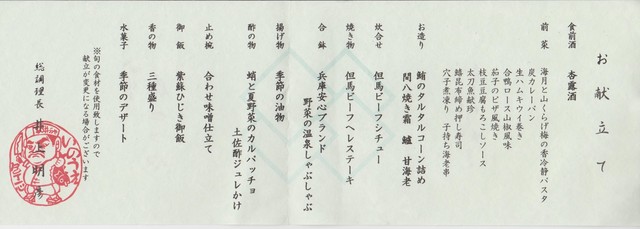 お献立て
食前酒　杏露酒
前菜　海月と山くらげ梅の香冷静パスタ
炭カレー
生ハムキウイ巻き
合鴨ロース山椒風味
茄子のピザ風焼き
枝豆豆腐もろこしソース
太刀魚献珍
鱧昆布締め押し寿司
穴子煮凍り　子持ち海老串
お造り　鮪のタルタルコーン詰め
間八焼き霜　鱸　甘海老
炊合せ　但馬ビーフシチュー
焼き物　但馬ビーフヘレステーキ
合鉢　兵庫安心ブランド
野菜の温泉しゃぶしゃぶ
揚げ物　季節の油物
酢の物　蛸と夏野菜のカルパッチョ
土佐酢ジュレかけ
止め椀　合わせ味噌仕立て
御飯　紫蘇ひじき御飯
香の物　三種盛り
水菓子　季節のデザート
※旬の食材を使用致しますので
献立が変更になる場合がございます
総調理長　井上明彦